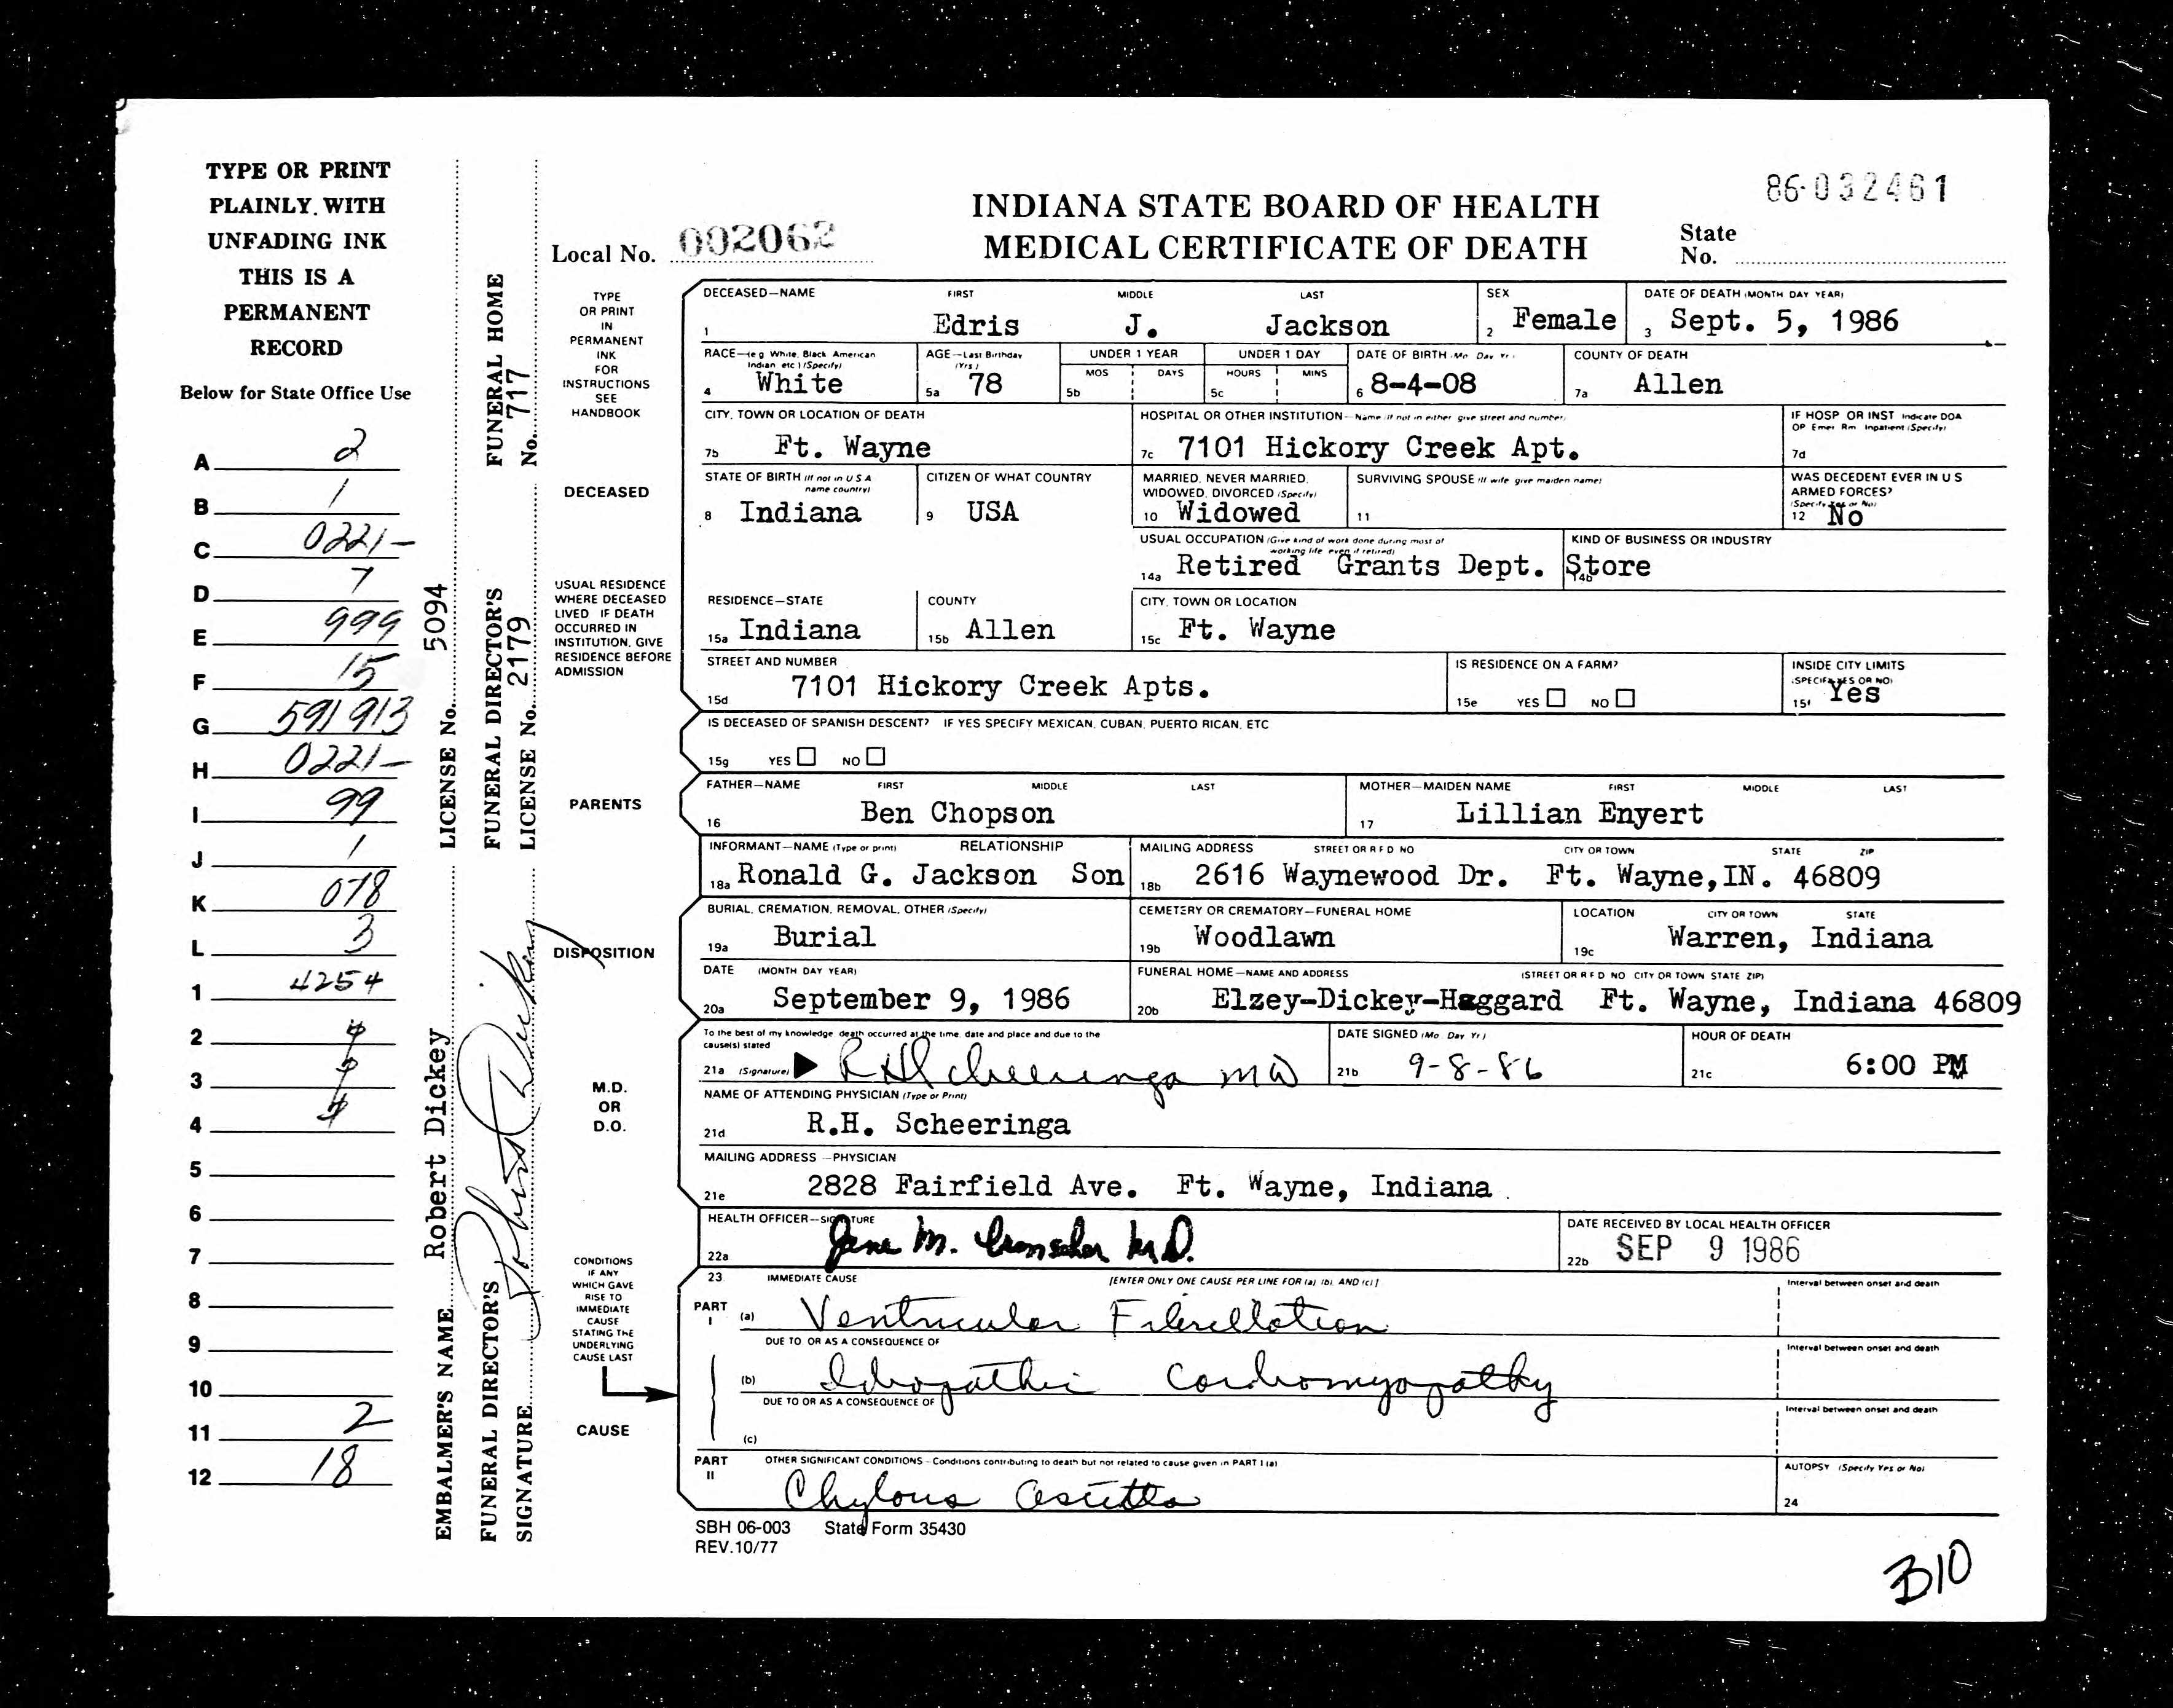 TYPE OR PRINT
PLAINLY, WITH
UNFADING INK
THIS IS A
PERMANENT
RECORD
Below for State Office Use
A 2
B 1
C 0221-
D 7
E 999
F 15
G 591 913
H 0221-
I 99
J 1
K 078
L 3
1 4254
2
3
4
5
6
7
8
9
10
11 2
12 18
EMBALMER'S NAME Robert Dickey LICENSE No. 5094
FUNERAL DIRECTOR'S SIGNATURE Robert Dickey
FUNERAL DIRECTOR'S LICENSE No. 2179
FUNERAL HOME No. 717
Local No. 002062
INDIANA STATE BOARD OF HEALTH
MEDICAL CERTIFICATE OF DEATH
86-032461
State No.
TYPE OR PRINT IN PERMANENT INK FOR INSTRUCTIONS SEE HANDBOOK
DECEASED—NAME FIRST MIDDLE LAST SEX DATE OF DEATH (MONTH DAY YEAR)
1 Edris J. Jackson 2 Female 3 Sept. 5, 1986
RACE—(e g White, Black American Indian etc) (Specify) AGE—Last Birthday (Yrs) UNDER 1 YEAR UNDER 1 DAY DATE OF BIRTH (Mo Day Yr) COUNTY OF DEATH
MOS DAYS HOURS MINS
4 White 5a 78 5b 5c 6 8-4-08 7a Allen
CITY, TOWN OR LOCATION OF DEATH HOSPITAL OR OTHER INSTITUTION—Name (If not in either give street and number) IF HOSP OR INST Indicate DOA OP Emer Rm Inpatient (Specify)
7b Ft. Wayne 7c 7101 Hickory Creek Apt. 7d
DECEASED
STATE OF BIRTH (If not in U S A name country) CITIZEN OF WHAT COUNTRY MARRIED, NEVER MARRIED, WIDOWED, DIVORCED (Specify) SURVIVING SPOUSE (If wife give maiden name) WAS DECEDENT EVER IN U S ARMED FORCES? (Specify Yes or No)
8 Indiana 9 USA 10 Widowed 11 12 No
USUAL OCCUPATION (Give kind of work done during most of working life even if retired) KIND OF BUSINESS OR INDUSTRY
14a Retired Grants Dept. 14b Store
USUAL RESIDENCE WHERE DECEASED LIVED IF DEATH OCCURRED IN INSTITUTION, GIVE RESIDENCE BEFORE ADMISSION
RESIDENCE—STATE COUNTY CITY, TOWN OR LOCATION
15a Indiana 15b Allen 15c Ft. Wayne
STREET AND NUMBER IS RESIDENCE ON A FARM? INSIDE CITY LIMITS (SPECIFY YES OR NO)
15d 7101 Hickory Creek Apts. 15e YES NO 15f Yes
IS DECEASED OF SPANISH DESCENT? IF YES SPECIFY MEXICAN, CUBAN, PUERTO RICAN, ETC
15g YES NO
PARENTS
FATHER—NAME FIRST MIDDLE LAST MOTHER—MAIDEN NAME FIRST MIDDLE LAST
16 Ben Chopson 17 Lillian Enyert
INFORMANT—NAME (Type or print) RELATIONSHIP MAILING ADDRESS STREET OR R F D NO CITY OR TOWN STATE ZIP
18a Ronald G. Jackson Son 18b 2616 Waynewood Dr. Ft. Wayne,IN. 46809
DISPOSITION
BURIAL, CREMATION, REMOVAL, OTHER (Specify) CEMETERY OR CREMATORY—FUNERAL HOME LOCATION CITY OR TOWN STATE
19a Burial 19b Woodlawn 19c Warren, Indiana
DATE (MONTH DAY YEAR) FUNERAL HOME—NAME AND ADDRESS (STREET OR R F D NO CITY OR TOWN STATE ZIP)
20a September 9, 1986 20b Elzey-Dickey-Haggard Ft. Wayne, Indiana 46809
M.D. OR D.O.
To the best of my knowledge death occurred at the time, date and place and due to the cause(s) stated DATE SIGNED (Mo Day Yr) HOUR OF DEATH
21a (Signature) RH Scheeringa MD 21b 9-8-86 21c 6:00 PM
NAME OF ATTENDING PHYSICIAN (Type or Print)
21d R.H. Scheeringa
MAILING ADDRESS—PHYSICIAN
21e 2828 Fairfield Ave. Ft. Wayne, Indiana
HEALTH OFFICER—SIGNATURE DATE RECEIVED BY LOCAL HEALTH OFFICER
22a Jane M. M.D. 22b SEP 9 1986
CONDITIONS IF ANY WHICH GAVE RISE TO IMMEDIATE CAUSE STATING THE UNDERLYING CAUSE LAST
CAUSE
23 IMMEDIATE CAUSE [ENTER ONLY ONE CAUSE PER LINE FOR (a) (b) AND (c)] Interval between onset and death
PART I (a) Ventricular Fibrillation
DUE TO OR AS A CONSEQUENCE OF Interval between onset and death
(b) Idiopathic Cardiomyopathy
DUE TO OR AS A CONSEQUENCE OF Interval between onset and death
(c)
PART II OTHER SIGNIFICANT CONDITIONS—Conditions contributing to death but not related to cause given in PART I (a) AUTOPSY (Specify Yes or No)
Chylous Ascites 24
SBH 06-003 State Form 35430
REV.10/77
B10